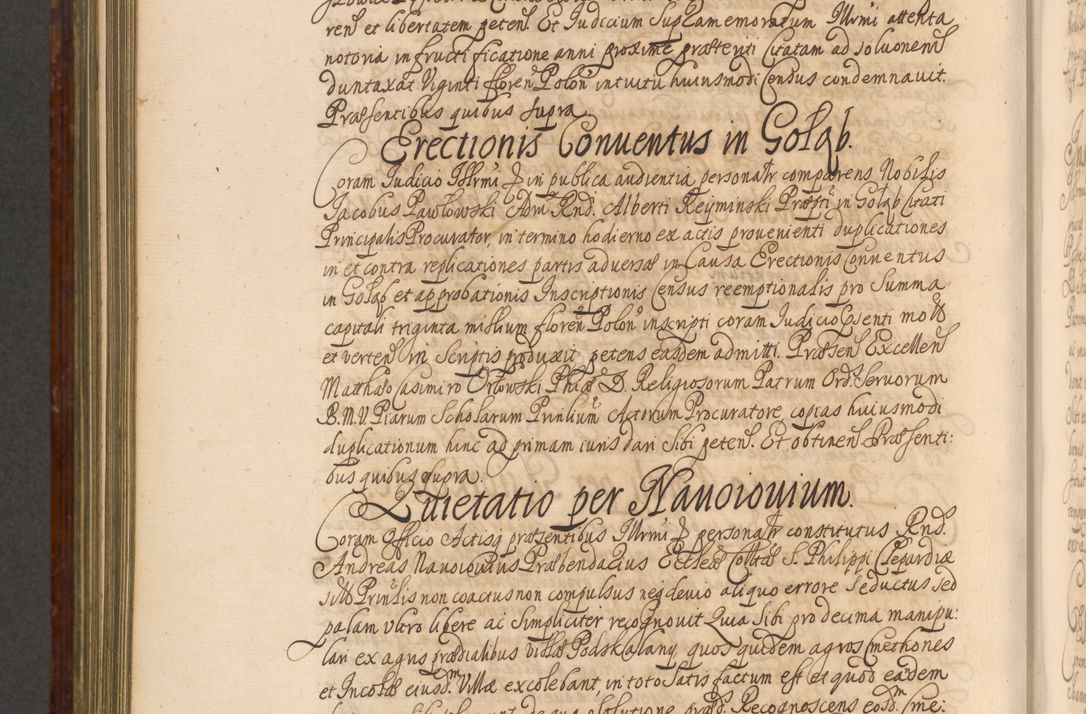 ren͂ et libertatem peten͂. Et Iudicium Suplamemoratum Illrmi attenta
notoria in fructificatione anni proxime prættenti Citatam ad soluonem
duntaxat Viginti floren͂ Polon͂ intuitu huiusmodi Census condemnauit.
Præsentibus quibus supra
Erectionis Conuentus in Gołąb.
Coram Iudicio Illrmi D in publica audientia personalr comparens Nobilis
Iacobus Pawłowski Adm Rnd. Alberti Keyminski Præpti in Gołąb Citati
Principalis Procurator, in termino hodierno ex actis prouenienti duplicationes
in et contra replicationes partis aduersæ in Causa Erectionis Conuentus
in Gołąb et approbationis Inscriptionis Census reemptionalis pro Summa
capitali triginta millium floren͂ Polon͂ inscripti coram Iudicio
et verten͂ in Scriptis produxit, petens easdem admitti. Præsen͂ Excellen͂
Matthæo Casimiro Orłowski Phiæ D. Religiosorum Patrum Ord. Seruorum
B.M.V. Piarum Scholarum Prinlium Actorum Procuratore, copias huiusmodi
duplicationum hinc ad primam iuris dari Sibi peten͂. Et obtinen͂ Præsenti:
bus quibus supra.
Quietatio per Nauoiouium.
Coram Officio Actisq præsentibus Illrmi D personalr constitutus Rnd.
Andreas Nauoiouius Præbendarius Eccleæ Collatæ S. Philippi Clepardiæ
Prinlis non coactus non compulsus neq deuio aliquo errore seductus sed
palam vltro libere ac simpliciter recognouit Quia Sibi pro decima manipu:
lari ex agris prædialibus villæ Podskalany, quos quidem agros Cmethones
et Incolæ eiusdm Villæ excolebant, in toto satis factum est et quod eandem
de qua solutione præd. Recognoscens eosdm Cme: